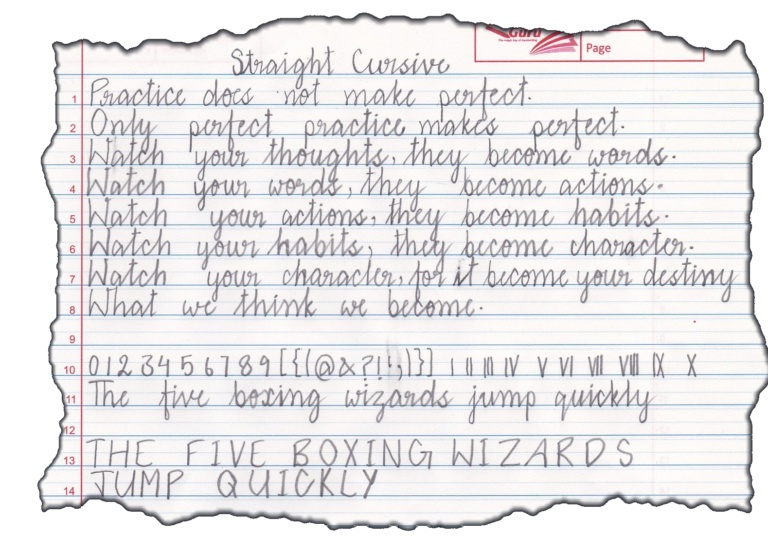 Guru
Page
Straight Cursive
1 Practice does not make perfect.
2 Only perfect practice makes perfect.
3 Watch your thoughts, they become words.
4 Watch your words, they become actions.
5 Watch your actions, they become habits.
6 Watch your habits, they become character.
7 Watch your character, for it become your destiny
8 What we think we become.
9
10 0 1 2 3 4 5 6 7 8 9 [{(@&?!;,)}] I II III IV V VI VII VIII IX X
11 The five boxing wizards jump quickly
12
13 THE FIVE BOXING WIZARDS
14 JUMP QUICKLY